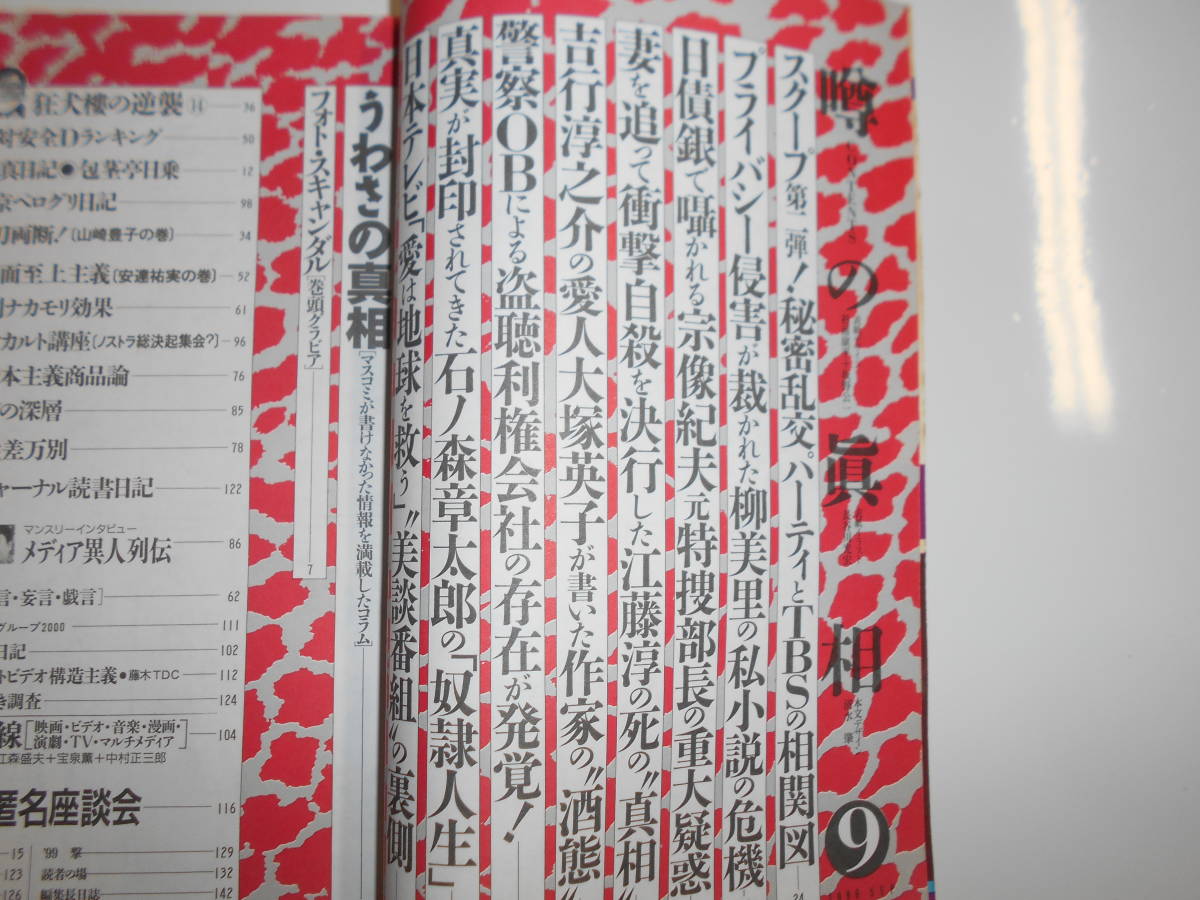 噂の眞相
CONTENTS
9
スクープ第二弾!秘密乱交パーティとTBSの相関図
24
プライバシー侵害が裁かれた柳美里の私小説の危機
日債銀で囁かれる宗像紀夫元特捜部長の重大疑惑
妻を追って衝撃自殺を決行した江藤淳の死の〝真相〟
吉行淳之介の愛人大塚英子が書いた作家の〝酒態〟
警察OBによる盗聴利権会社の存在が発覚!
真実が封印されてきた石ノ森章太郎の「奴隷人生」
日本テレビ「愛は地球を救う」〝美談番組〟の裏側
うわさの真相[マスコミが書けなかった情報を満載したコラム]
フォト・スキャンダル[巻頭グラビア]
7
狂犬樓の逆襲 14 36
対安全Dランキング 50
真日記●包茎亭日乗 12
京ヘログリ日記 98
刀両断![山崎豊子の巻] 34
面至上主義[安達祐実の巻] 52
ナカモリ効果 61
カルト講座[ノストラ総決起集会?] 96
本主義商品論 76
の深層 85
差万別 78
ャーナル読書日記 122
マンスリーインタビュー
メディア異人列伝 86
言・妄言・戯言] 62
グループ2000 111
日記 102
トビデオ構造主義●藤木TDC 112
き調査 124
線[映画・ビデオ・音楽・漫画・
演劇・TV・マルチメディア] 104
江森盛夫+宝泉薫+中村正三郎
匿名座談会 116
15 '99 撃 129
123 読者の場 132
126 編集長日誌 142